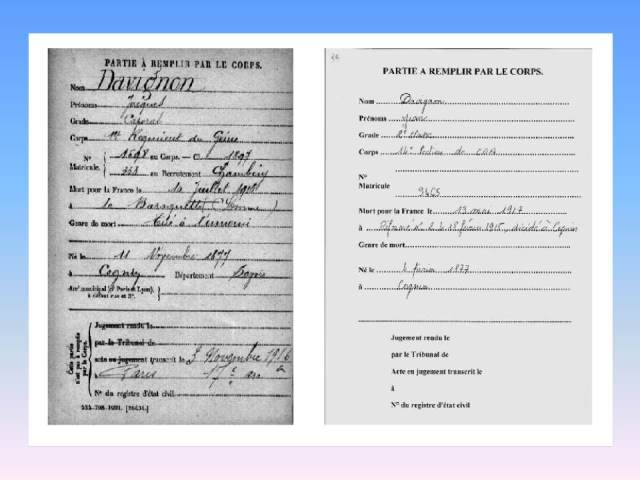 PARTIE À REMPLIR PAR LE CORPS.
Nom Davignon
Prénoms
Grade Caporal
Corps Regiment du Génie
N° Matricule. 1598 au Corps. — Cl 1897
353 au Recrutement Chambéry
Mort pour la France le Juillet
à la Baraquette (Somme)
Genre de mort Tué à l'ennemi
Né le 11 Novembre 1877
à Cognin Département Savoie
Arr! municipal (p' Paris et Lyon),
à défaut rue et N°.
Cette partie n'est pas à remplir par le Corps.
Jugement rendu le
par le Tribunal de
acte ou jugement transcrit le 3 Novembre 1916
à Paris 17e
N° du registre d'état civil
PARTIE A REMPLIR PAR LE CORPS.
Nom
Prénoms
Grade 2e classe
Corps Section de
N°
Matricule
Mort pour la France le 13 mars 1917
à Réformé n° 2 le 18 février 1915, décédé à Cognin
Genre de mort
Né le février 1877
à Cognin
Jugement rendu le
par le Tribunal de
Acte en jugement transcrit le
à
N° du registre d'état civil